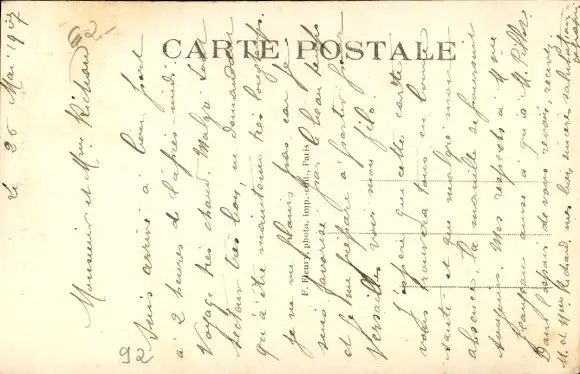 CARTE POSTALE
F. Fleury, photo. imp.-édit., Paris
Le 26 Mai 1917
Monsieur et Mme Richard
Suis arrivé à bon port
à 2 heures de l'après-midi.
Voyage très chaud. Malgré tout
secteur très bon, ne demandant
qu'à être maintenu très longtemps.
je ne me plains pas car je
suis favorisé par le beau temps
et je me prépare à partir pour
Versailles voir mon fils.
J'espère que cette carte
vous trouvera tous en bonne
santé et que malgré mon
absence, la manille se poursuit
toujours. Mes respects à Mme
aussi qu'à M.
Dans l'espoir de vous revoir, recevez
M. et Mme Richard, mes bien sincères salutations
92